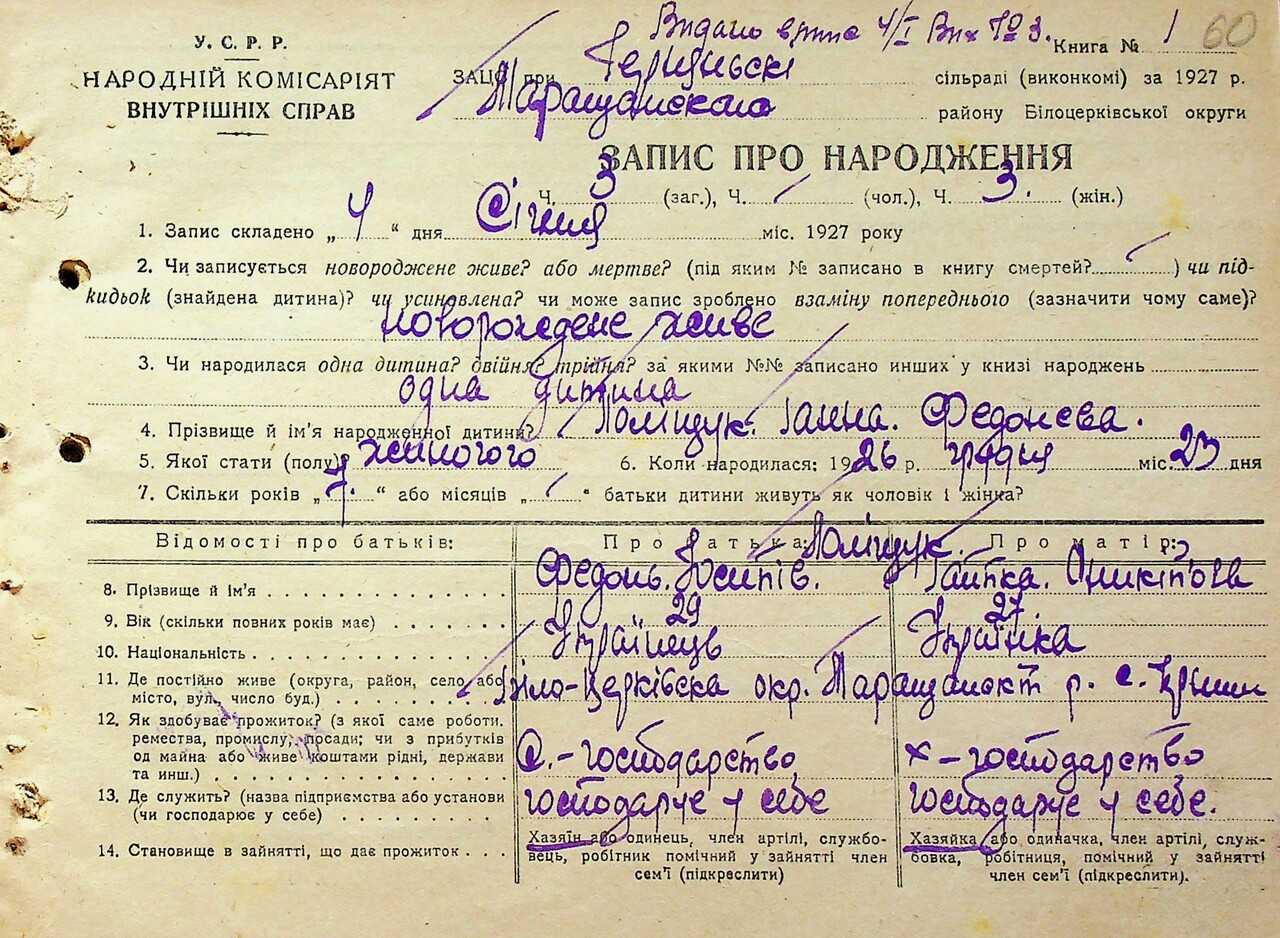 Видань 4/I Вих № 3.
У. С. Р. Р.
НАРОДНІЙ КОМІСАРІЯТ
ВНУТРІШНІХ СПРАВ
Книга № 1 60
ЗАЦС при сільраді (виконкомі) за 1927 р.
Таращанского району Білоцерківської округи
ЗАПИС ПРО НАРОДЖЕННЯ
Ч. 3 (заг.), Ч. - (чол.), Ч. 3. (жін.)
1. Запис складено „ 4 “ дня Січня міс. 1927 року
2. Чи записується новороджене живе? або мертве? (під яким № записано в книгу смертей? - ) чи підкидьок (знайдена дитина)? чи усиновлена? чи може запис зроблено взаміну попереднього (зазначити чому саме)?
новорождене живе
3. Чи народилася одна дитина? двійня? трійня? за якими №№ записано инших у книзі народжень
одна дитина
4. Прізвище й ім'я народженної дитини? Поліщук. Ганна. Федонєва.
5. Якої стати (полу)? жиночого 6. Коли народилася: 1926 р. грудня міс. 23 дня
7. Скільки років „ 7. “ або місяців „ - “ батьки дитини живуть як чоловік і жінка?
Відомості про батьків: Про батька: Про матір:
Поліщук.
8. Прізвище й ім'я Федонь. Йосипів. Гапка.
9. Вік (скільки повних років має) 29 27.
10. Національність Українець Українка
11. Де постійно живе (округа, район, село або місто, вул., число буд.) Біло-Церківска окр. р. с.
12. Як здобуває прожиток? (з якої саме роботи. ремества, промислу, посади; чи з прибутків од майна або живе коштами рідні, держави та инш.) С.-господарство х-господарство
13. Де служить? (назва підприємства або установи (чи господарює у себе) господарує у себе господарує у себе.
14. Становище в зайнятті, що дає прожиток
Хазяїн або одинець, член артілі, службовець, робітник помічний у зайнятті член сем'ї (підкреслити)
Хазяйка або одиначка, член артілі, службовка, робітниця, помічний у зайнятті член сем'ї (підкреслити).